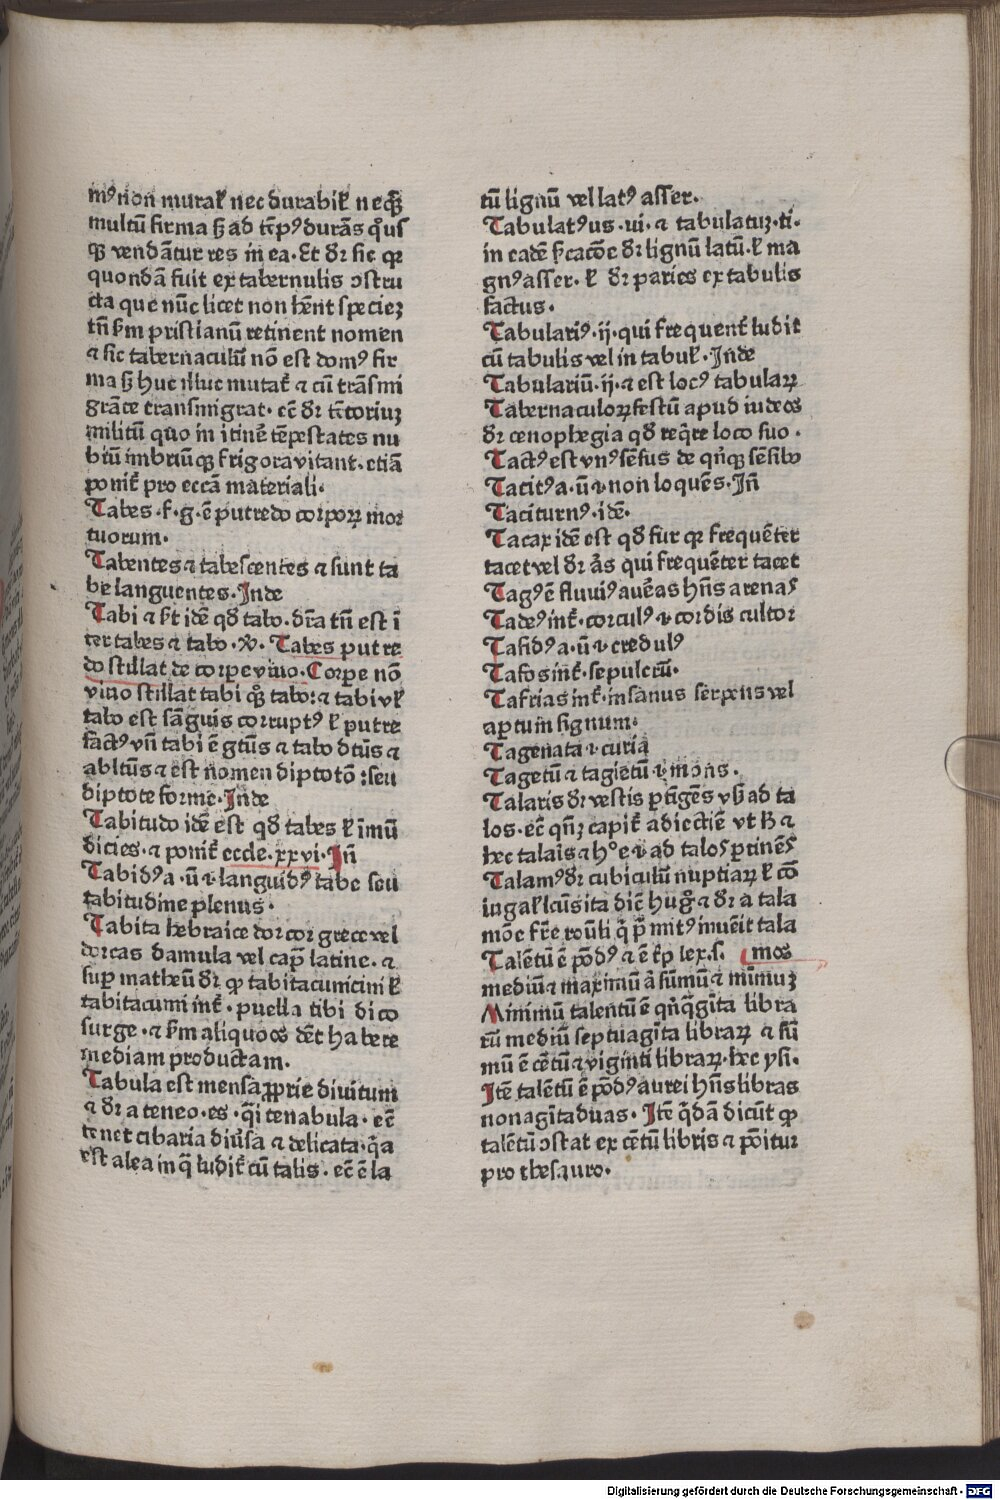 mꝰ non muraƚ nec durabiƚ neqꝫ
multū firma ſꝫ ad tēpꝰ durās qͦuſ
qꝫ vendātur res in ea. Et dr̄ sic qꝛ
quondā fuit ex tabernulis ↄstru
cta que nūc licet non hn̄t speciez
tn̄ ſm pristianū retinent nomen
⁊ sic tabernaculū nō est domꝰ fir
ma ſꝫ huc illuc mutať ⁊ cū trāsmi
grāte transmigrat. eē dr̄ tētoriuꝫ
militū quo in itinē tēpestates nu
biū imbriūqꝫ frigora vitant. etiā
poniť pro eccā materiali.
Tabes. f. g. ē putredo corpoꝝ moꝛ
tuorum.
Tabentes ⁊ tabescentes ⁊ sunt ta
be languentes. Inde
Tabi ⁊ ſt idē qd̄ tabo. dr̄a tn̄ est ī
ter tabes ⁊ tabo. V̄. Tabes putre
do stillat de corpe viuo. Corpe nō
viuo stillat tabi qͦꝫ tabo: ⁊ tabi vƚ
tabo est sāguis corruptꝰ ƚ putre
factꝰ vn̄ tabi ē gtūs ⁊ tabo dtūs ⁊
abltūs ⁊ est nomen diptotō: seu
diptote forme. Inde
Tabitudo idē est qd̄ tabes ƚ īmū
dicies. ⁊ poniť eccle. xxvi. In̄
Tabidꝰa. ū ⁊ languidꝰ tabe seu
tabitudine plenus.
Tabita hebraice dorcor grece vel
dorcas damula vel cap̄ latine. ⁊
suꝑ matheū dr̄ ꝙ tabitacumicini ƚ
tabitacumi inť. puella tibi dico
surge. ⁊ ſm aliquos dēt habere
mediam productam.
Tabula est mensa ꝓprie diuitum
⁊ dr̄ a teneo. es. q̄i tenabula. eē
tenet cibaria diūsa ⁊ delicata. q̄a
est alea in q̄ ludiť cū talis. eē ē la
tū lignū vel latꝰ asser.
Tabulatꝰus. ui. ⁊ tabulatuꝫ. ti.
in eadē ſcacōe dr̄ lignū latū. ƚ ma
gnꝰ asser. ƚ dr̄ paries ex tabulis
factus.
Tabulariꝰ. ij. qui frequenť ludit
cū tabulis vel in tabuƚ. Inde
Tabulariū. ij. ⁊ est locꝰ tabulaꝝ
Tabernaculoꝝ festū apud iudeos
dr̄ cenophegia qd̄ req̄re loco suo.
Tactꝰ est vnꝰ sēsus de qn̄qꝫ sēsibꝰ
Tacitꝰa. ū ⁊ non loquēs. In̄
Taciturnꝰ. idē.
Tacax idē est qd̄ fur qꝛ frequēter
tacet vel dr̄ aīs qui frequēter tacet
Tagꝰ ē fluuiꝰ auēas hn̄s arenas
Tadeꝰ inť. corculꝰ ⁊ cordis cultor
Tafidꝰa. ū ⁊ credulꝰ
Tafos inť. sepulcrū.
Tafrias inť. insanus serpens vel
aptum signum.
Tagenata ⁊ curia
Tagetū ⁊ tagietū ⁊ mons.
Talaris dr̄ vestis ꝑtīgēs vſꝫ ad ta
los. eē qn̄ꝫ capiť adiectiē vt ħ ⁊
hec talais ⁊ hͦ e ⁊ ad talos ꝑtinēs
Talamꝰ dr̄ cubiculū nuptiaꝝ ƚ cō
iugaƚ lcūsita dic̄ hugͦ ⁊ dr̄ a tala
mōe fr̄e roūli q̄ p̄ mitꝰ inueīt tala
Talētū ē pōdꝰ ⁊ ē tp̄ lex. s. mos
mediū ⁊ maximū ⁊ sūmū ⁊ mīmuꝫ
Minimū talentū ē qn̄q̄gīta libra
rū mediū septuagīta libraꝝ ⁊ sū
mū ē cētū ⁊ viginti libraꝝ. hec ysi.
Itē talētū ē pōdꝰ aurei hn̄s libras
nonagīta duas. Itē q̄dā dicūt ꝙ
talētū ↄstat ex cētū libris ⁊ pōitur
pro thesauro.
Digitalisierung gefördert durch die Deutsche Forschungsgemeinschaft - DFG